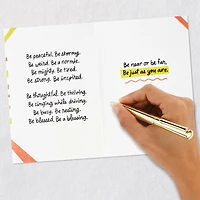 Be peaceful. Be stormy.
Be weird. Be a normie.
Be mighty. Be tired.
Be strong. Be inspired.
Be thoughtful. Be thriving.
Be singing while driving.
Be busy. Be healing.
Be blessed. Be a blessing.
Be near or be far,
Be just as you are.